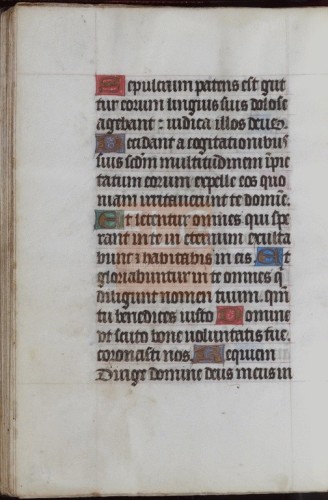 Sepulcrum patens est gut
tur eorum linguis suis dolose
agebant : iudica illos deus.
Decidant a cogitationibus
suis scdm multitudinem ipie
tatum eorum expelle eos quo
niam irritauerunt te domine.
Et letentur omnes qui spe
rant in te in eternum exulta
bunt ⁊ habitabis in eis. Et
gloriabuntur in te omnes q
diligunt nomen tuum. qm
tu benedices iusto Domine
vt scuto bone voluntatis tue.
coronasti nos. Requiem
Dirige domine deus meus in